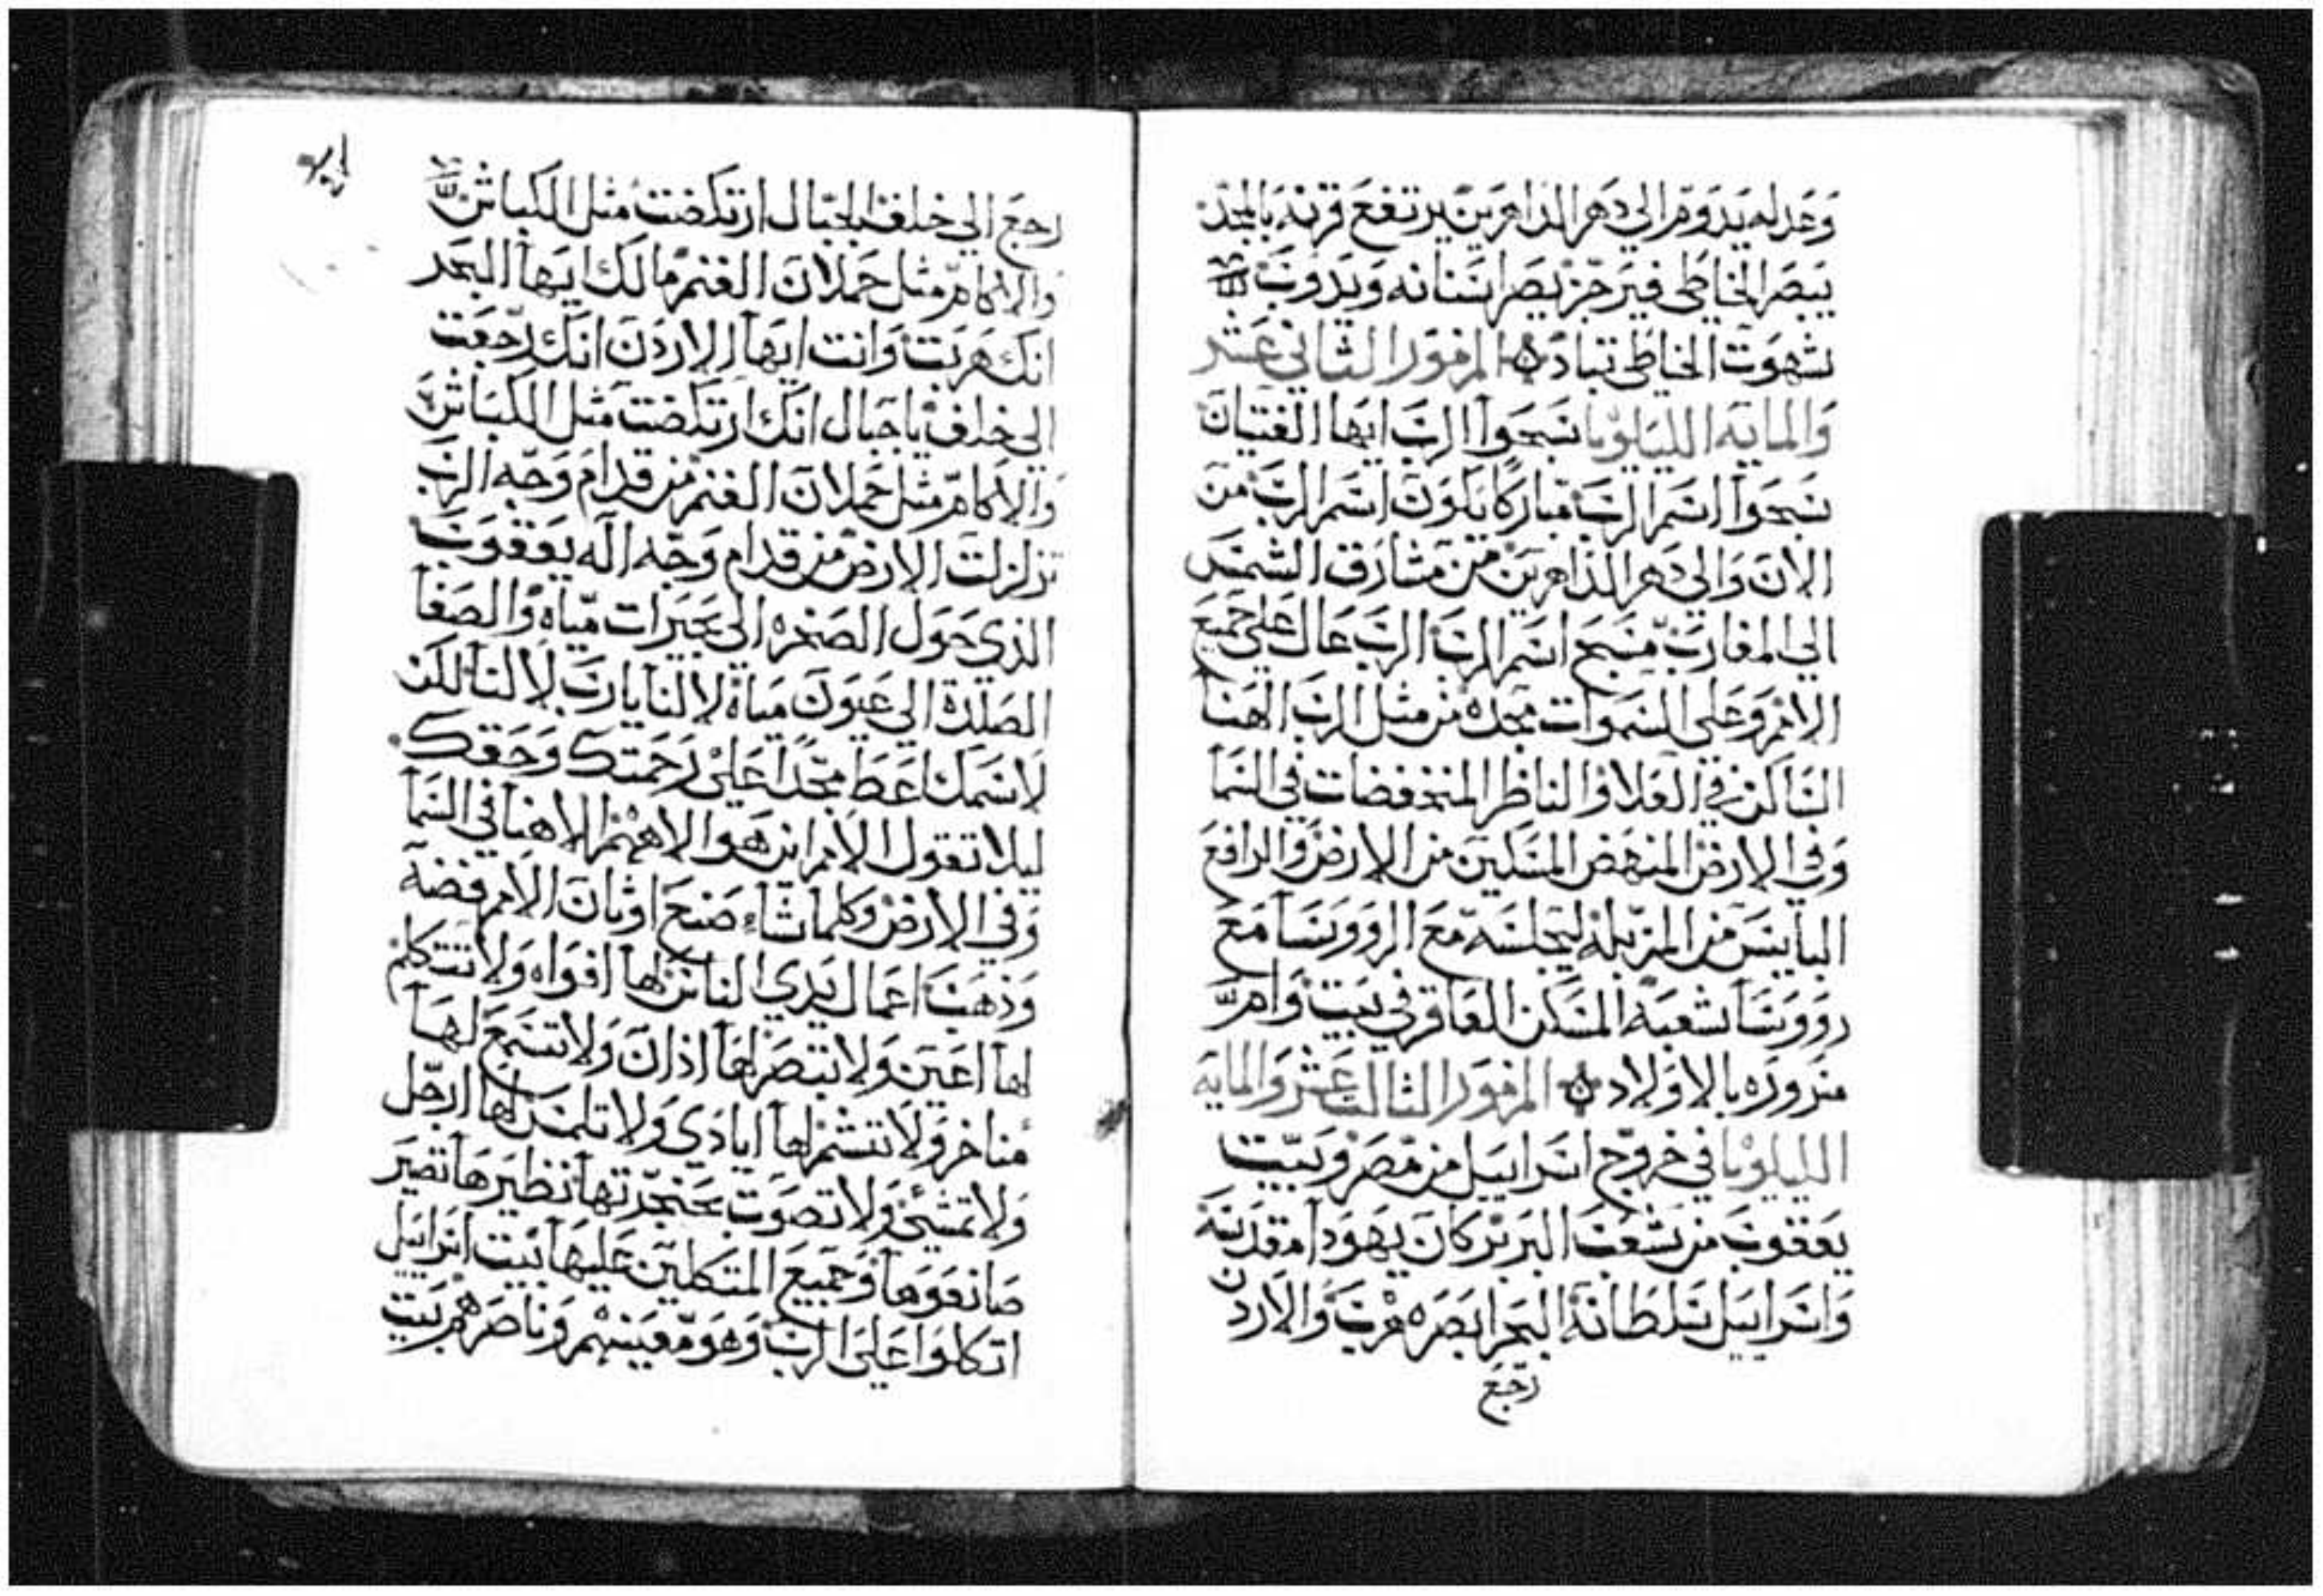 وعدله يدوم الي دهر الداهرين يرتفع قرنه بالمجد
يبصر الخاطي فيرجز يصر اسنانه ويدوب
شهوت الخاطي تباد المزمور الثاني عشر
والمايه الليلويا سبحوا الرب ايها الفتيان
سبحوا اسم الرب مباركا يكون اسم الرب من
الان والي دهر الداهرين من مشارق الشمس
الي المغارب مسبح اسم الرب الرب عال علي جميع
الامم وعلي السموات مجده من مثل الرب الهنا
الساكن في العلا والناظر المنخفضات في السما
وفي الارض المنهض المسكين من الارض والرافع
البايس من المزبله ليجلسه مع الرووسا مع
رووسا شعبه المسكن العاقر في بيت وام
مسروره بالاولاد المزمور الثالث عشر والمايه
الليلويا في خروج اسراييل من مصر وبيت
يعقوب من شعب البربر كان يهودا مقدسه
واسراييل سلطانه البحر ابصره هرب والاردن
رجع
رجع الي خلف الجبال ارتكضت مثل الكباش
والاكام مثل حملان الغنم مالك ايها البحر
انك هربت وانت ايها الاردن انك رجعت
الي خلف يا جبال انك ارتكضت مثل الكباش
والاكام مثل حملان الغنم من قدام وجه الرب
تزلزلت الارض من قدام وجه اله يعقوب
الذي حول الصخره الي بحيرات مياه والصفا
الصلده الي عيون مياة لا لنا يارب لا لنا لكن
لاسمك اعط مجدا علي رحمتك وحقك
ليلا تقول الامم اين هو الاههم الاهنا في السما
وفي الارض وكلما شاء صنع اوثان الامم فضه
وذهب اعمال يدي الناس لها افواه ولا تتكلم
لها اعين ولا تبصر لها اذان ولا تسمع لها
مناخر ولا تشم لها ايادي ولا تلمس لها ارجل
ولا تمشي ولا تصوت بحنجرتها نظيرها تصير
صانعوها وجميع المتكلين عليها بيت اسراييل
اتكلوا علي الرب وهو معينهم وناصرهم بيت